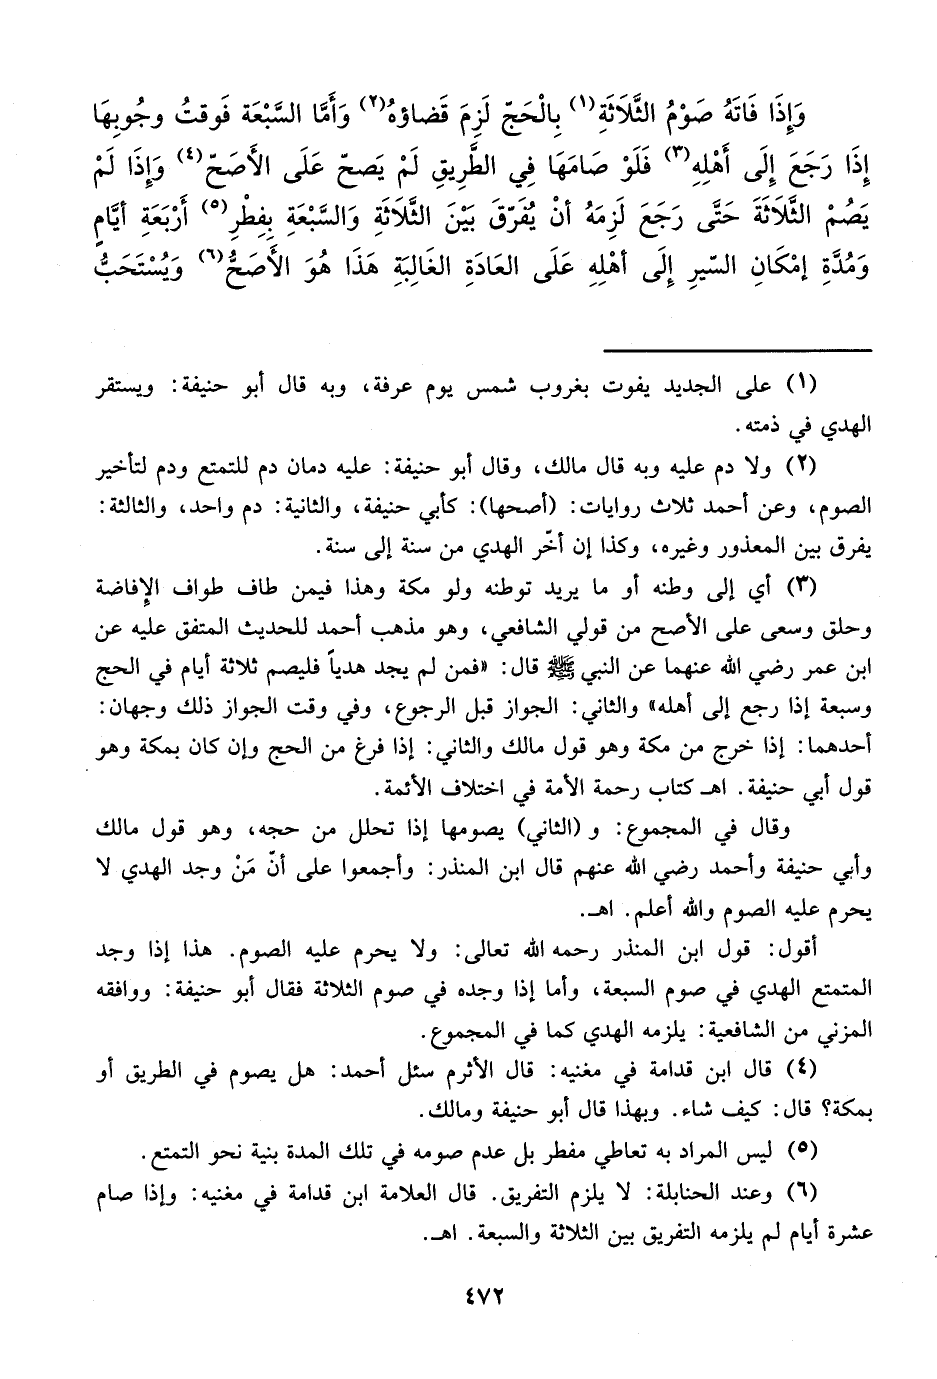 وَإِذَا فَاتَهُ صَوْمُ الثَّلَاثَةِ(١) بِالْحَجّ لَزِمَ قَضاؤهُ(٢) وَأَمَّا السَّبْعَة فَوقتُ وجُوبِهَا
إِذَا رَجَعَ إِلَى أَهْلِهِ(٣) فَلَوْ صَامَهَا فِي الطَّرِيقِ لَمْ يَصحّ عَلَى الأَصَحّ(٤) وَإِذَا لَمْ
يَصُمْ الثَّلَاثَةَ حَتَّى رَجَعَ لَزِمَهُ أنْ يُفَرّقَ بَيْنَ الثَّلَاثَةِ وَالسَّبْعَةِ بِفِطْرِ(٥) أَرْبَعَةِ أيَّامٍ
وَمُدَّةِ إمْكَانِ السّيرِ إِلَى أهْلِهِ عَلَى العَادَةِ الغَالِبَةِ هَذَا هُوَ الأَصَحُّ(٦) وَيُسْتَحَبُّ
(١) على الجديد يفوت بغروب شمس يوم عرفة، وبه قال أبو حنيفة: ويستقر
الهدي في ذمته.
(٢) ولا دم عليه وبه قال مالك، وقال أبو حنيفة: عليه دمان دم للتمتع ودم لتأخير
الصوم، وعن أحمد ثلاث روايات: (أصحها): كأبي حنيفة، والثانية: دم واحد، والثالثة:
يفرق بين المعذور وغيره، وكذا إن أخّر الهدي من سنة إلى سنة.
(٣) أي إلى وطنه أو ما يريد توطنه ولو مكة وهذا فيمن طاف طواف الإفاضة
وحلق وسعى على الأصح من قولي الشافعي، وهو مذهب أحمد للحديث المتفق عليه عن
ابن عمر رضي الله عنهما عن النبي ﷺ قال: «فمن لم يجد هدياً فليصم ثلاثة أيام في الحج
وسبعة إذا رجع إلى أهله» والثاني: الجواز قبل الرجوع، وفي وقت الجواز ذلك وجهان:
أحدهما: إذا خرج من مكة وهو قول مالك والثاني: إذا فرغ من الحج وإن كان بمكة وهو
قول أبي حنيفة. اهـ كتاب رحمة الأمة في اختلاف الأئمة.
وقال في المجموع: و (الثاني) يصومها إذا تحلل من حجه، وهو قول مالك
وأبي حنيفة وأحمد رضي الله عنهم قال ابن المنذر: وأجمعوا على أنّ مَنْ وجد الهدي لا
يحرم عليه الصوم والله أعلم. اهـ.
أقول: قول ابن المنذر رحمه الله تعالى: ولا يحرم عليه الصوم. هذا إذا وجد
المتمتع الهدي في صوم السبعة، وأما إذا وجده في صوم الثلاثة فقال أبو حنيفة: ووافقه
المزني من الشافعية: يلزمه الهدي كما في المجموع.
(٤) قال ابن قدامة في مغنيه: قال الأثرم سئل أحمد: هل يصوم في الطريق أو
بمكة؟ قال: كيف شاء. وبهذا قال أبو حنيفة ومالك.
(٥) ليس المراد به تعاطي مفطر بل عدم صومه في تلك المدة بنية نحو التمتع.
(٦) وعند الحنابلة: لا يلزم التفريق. قال العلامة ابن قدامة في مغنيه: وإذا صام
عشرة أيام لم يلزمه التفريق بين الثلاثة والسبعة. اهـ.
٤٧٢